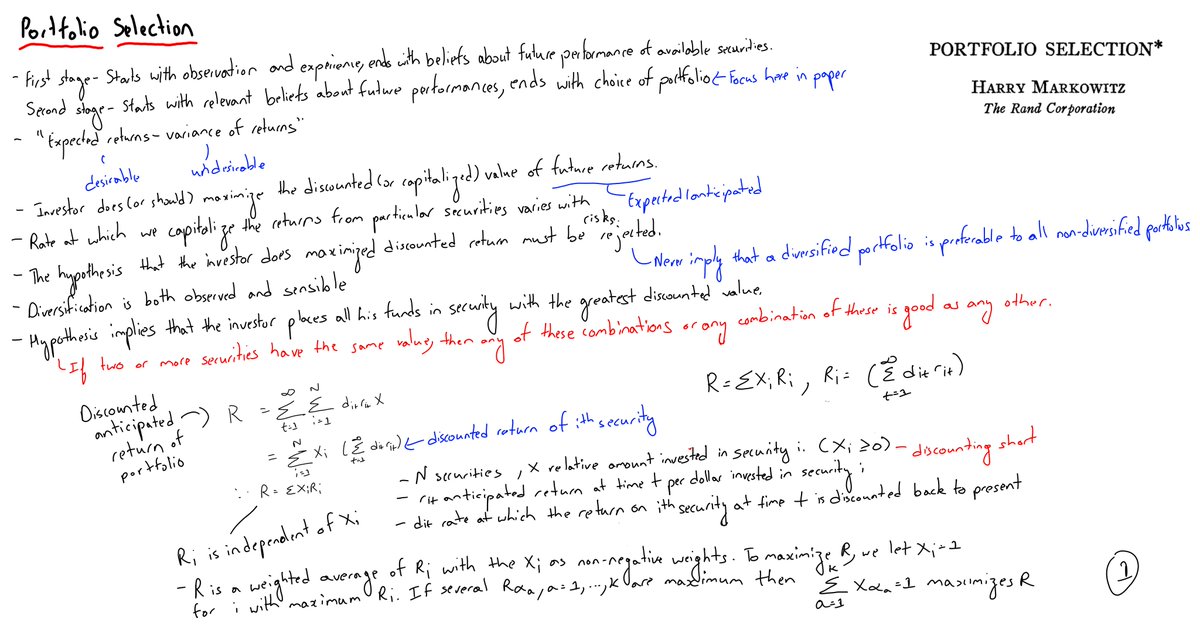 Portfolio Selection
PORTFOLIO SELECTION*
HARRY MARKOWITZ
The Rand Corporation
- First stage - Starts with observation and experience, ends with beliefs about future performance of available securities.
Second stage - Starts with relevant beliefs about future performances, ends with choice of portfolio ← Focus here in paper
- "Expected returns - variance of returns"
desirable
undesirable
- Investor does (or should) maximize the discounted (or capitalized) value of future returns.
Expected/anticipated
- Rate at which we capitalize the returns from particular securities varies with risks.
- The hypothesis that the investor does maximized discounted return must be rejected.
Never imply that a diversified portfolio is preferable to all non-diversified portfolios
- Diversification is both observed and sensible
- Hypothesis implies that the investor places all his funds in security with the greatest discounted value.
If two or more securities have the same value, then any of these combinations or any combination of these is good as any other.
R = ΣXiRi , Ri = (Σ^∞_{t=1} dit rit)
Discounted
anticipated → R = Σ^∞_{t=1} Σ^N_{i=1} dit rit X
return of
portfolio
= Σ^N_{i=1} Xi (Σ^∞_{t=1} dit rit) ← discounted return of ith security
∵ R = ΣXiRi
Ri is independent of Xi
- N securities, X relative amount invested in security i. (Xi ≥ 0) - discounting short
- rit anticipated return at time t per dollar invested in security i
- dit rate at which the return on ith security at time t is discounted back to present
- R is a weighted average of Ri with the Xi as non-negative weights. To maximize R, we let Xi = 1
for i with maximum Ri. If several Rαa, a = 1, ..., K are maximum then Σ^K_{a=1} Xαa = 1 maximizes R
1